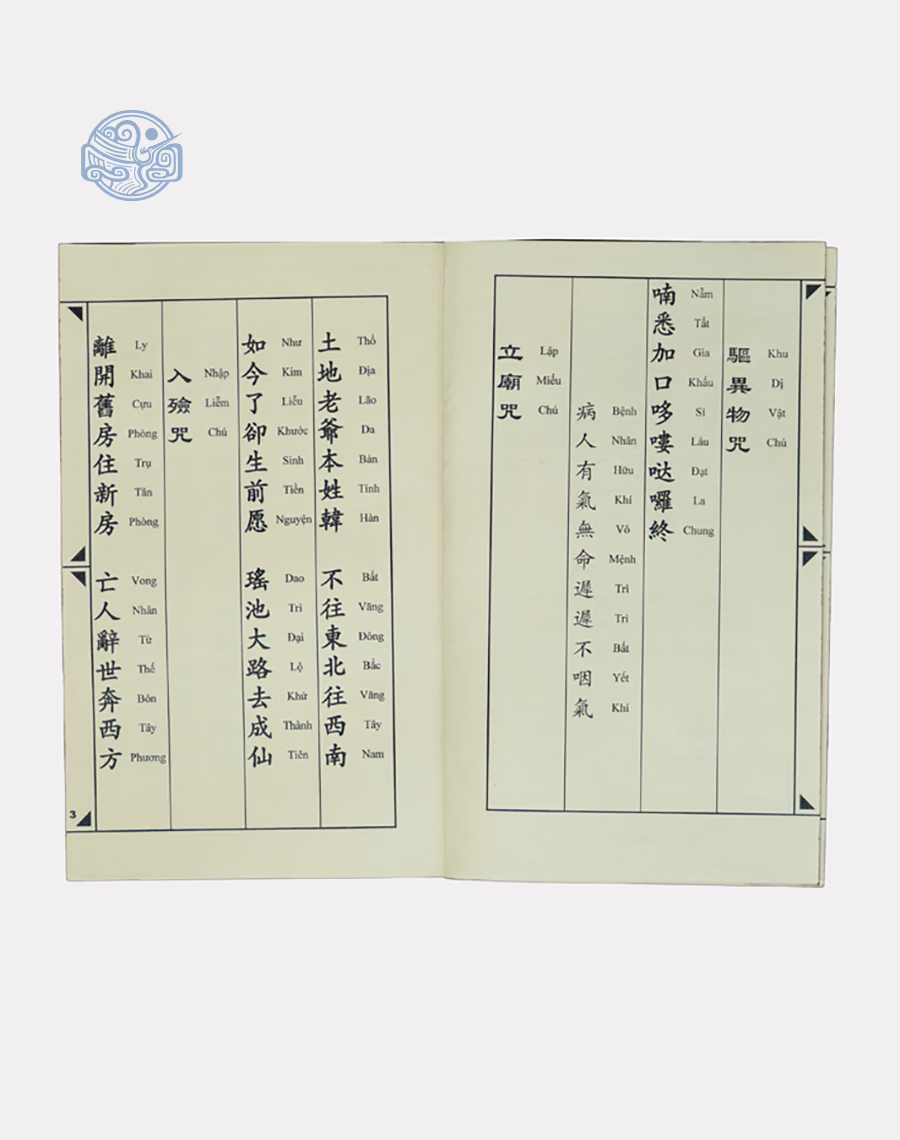 驅異物咒
Khu Dị Vật Chú
喃悉加口哆嘍哒囉終
Nẵm Tất Gia Khẩu Si Lâu Đạt La Chung
病人有氣無命遲遲不咽氣
Bệnh Nhân Hữu Khí Vô Mệnh Trì Trì Bất Yết Khí
立廟咒
Lập Miếu Chú
土地老爺本姓韓 不往東北往西南
Thổ Địa Lão Da Bản Tính Hàn Bất Vãng Đông Bắc Vãng Tây Nam
如今了卻生前愿 瑤池大路去成仙
Như Kim Liễu Khước Sinh Tiền Nguyện Dao Trì Đại Lộ Khứ Thành Tiên
入殮咒
Nhập Liễm Chú
離開舊房住新房 亡人辭世奔西方
Ly Khai Cựu Phòng Trụ Tân Phòng Vong Nhân Từ Thế Bôn Tây Phương
3